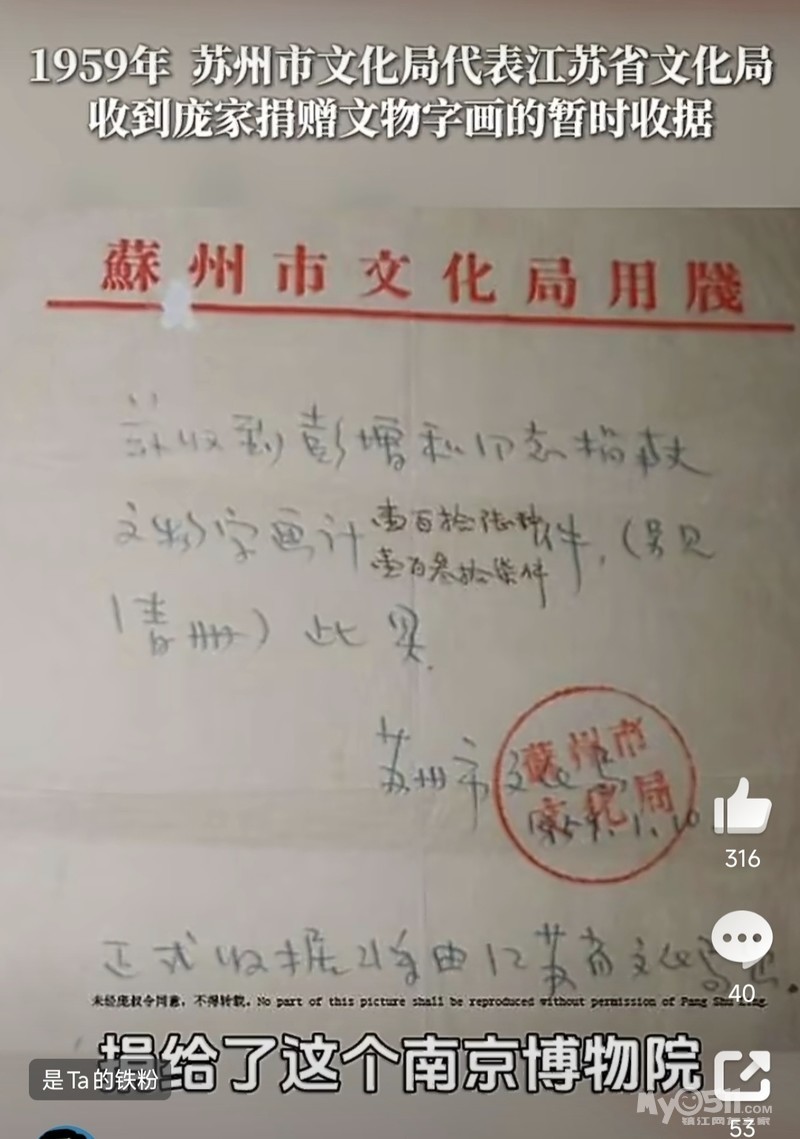 1959年 苏州市文化局代表江苏省文化局
收到庞家捐赠文物字画的暂时收据
蘇州市文化局用牋
兹收到彭增和同志捐献
文物字画计壹百拾陆种件，（另见
壹百叁拾柒件
清册）此具
苏州市文化局
蘇州市
文化局
59.1.10
正式收据将由江苏省文化局
未经庞叔令同意，不得转载。No part of this picture shall be reproduced without permission of Pang Shu Ling.
捐给了这个南京博物院
是Ta的铁粉
316
40
53
My0511.com
镇江网友之家